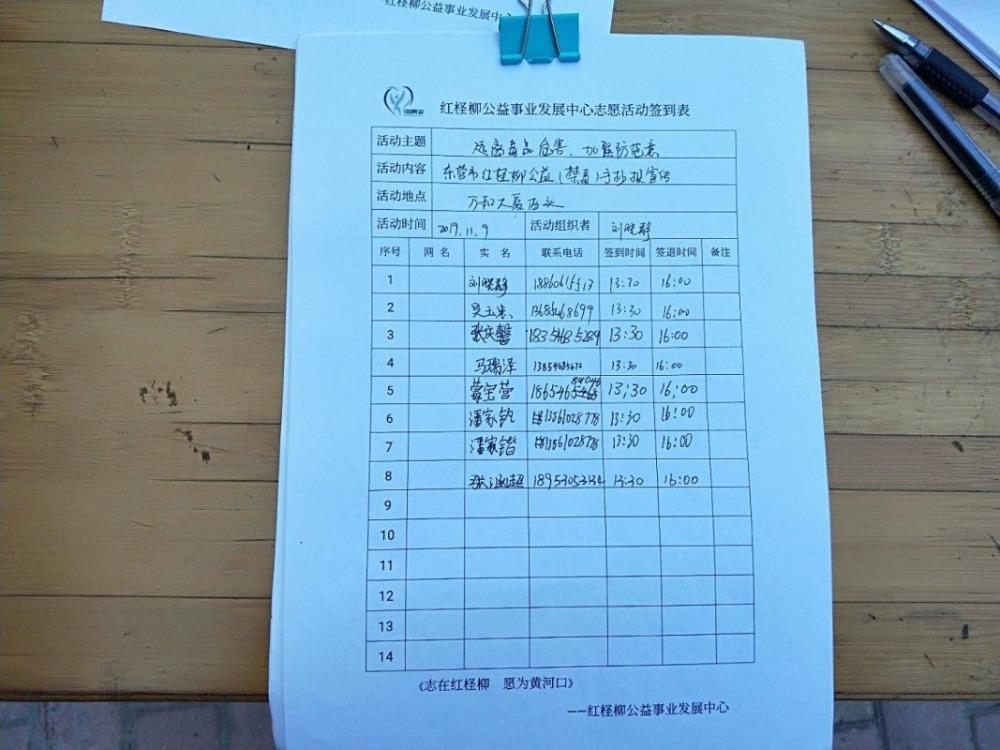 红柽柳公益事业发展中心
红柽柳公益事业发展中心志愿活动签到表
活动主题 远离毒品危害、加强防范意
活动内容 东营市红柽柳公益(禁毒)手抄报宣传
活动地点 万和大厦西头
活动时间 2019.11.9 活动组织者 刘晓静
序号 网 名 实 名 联系电话 签到时间 签退时间 备注
1 刘晓静 13:30 16:00
2 13:30 16:00
3 张庆馨 18354685289 13:30 16:00
4 马瑞泽 13:30 16:00
5 13:30 16:00
6 潘家 13:30 16:00
7 潘家锴 13:30 16:00
8 13:30 16:00
9
10
11
12
13
14
《志在红柽柳 愿为黄河口》
——红柽柳公益事业发展中心